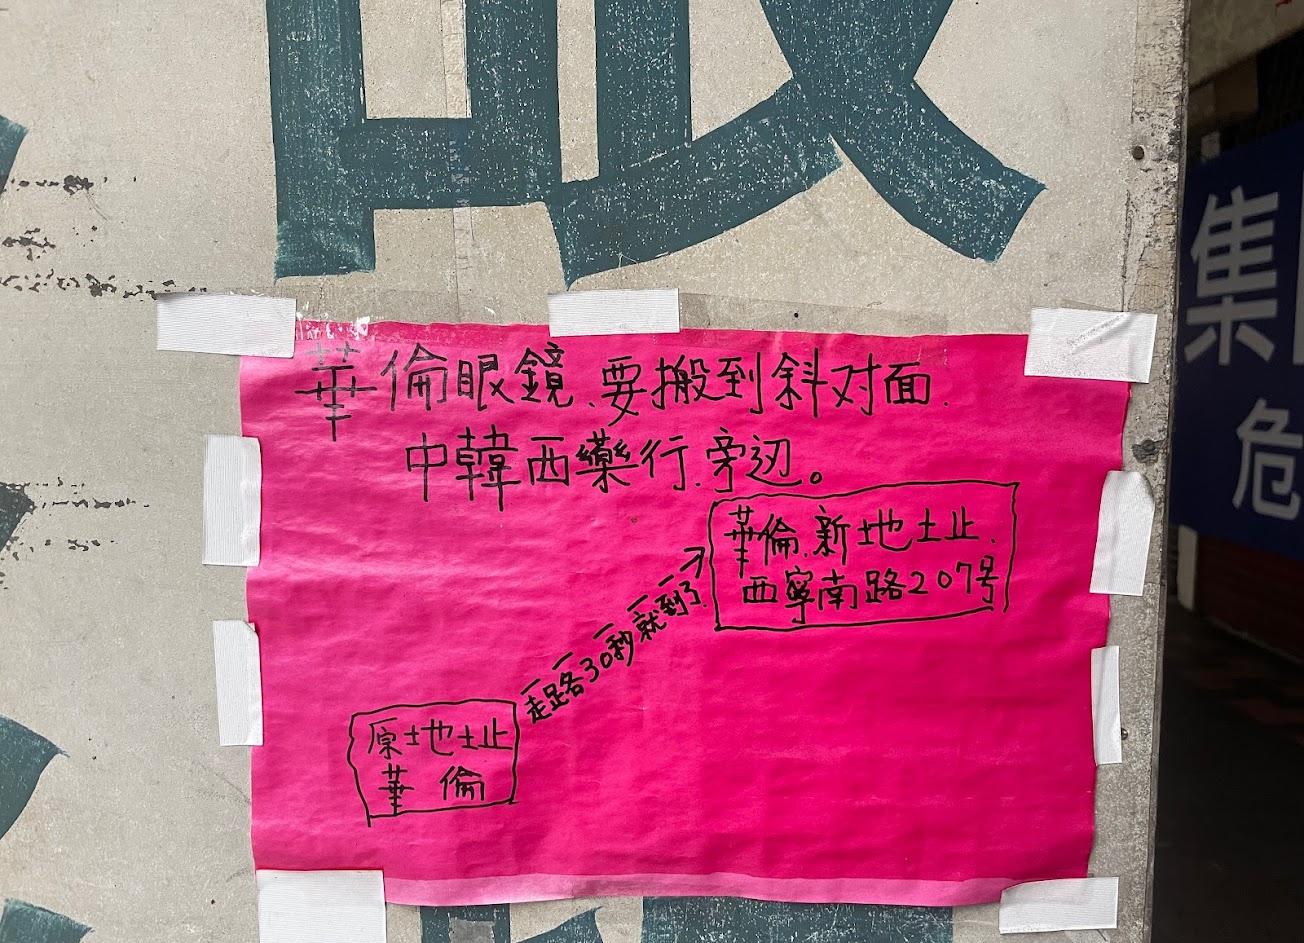 華倫眼鏡、要搬到斜对面、
中韓西藥行、旁边。
華倫、新地址、
西寧南路207号
走路30秒就到了、
原地址
華倫
集
危